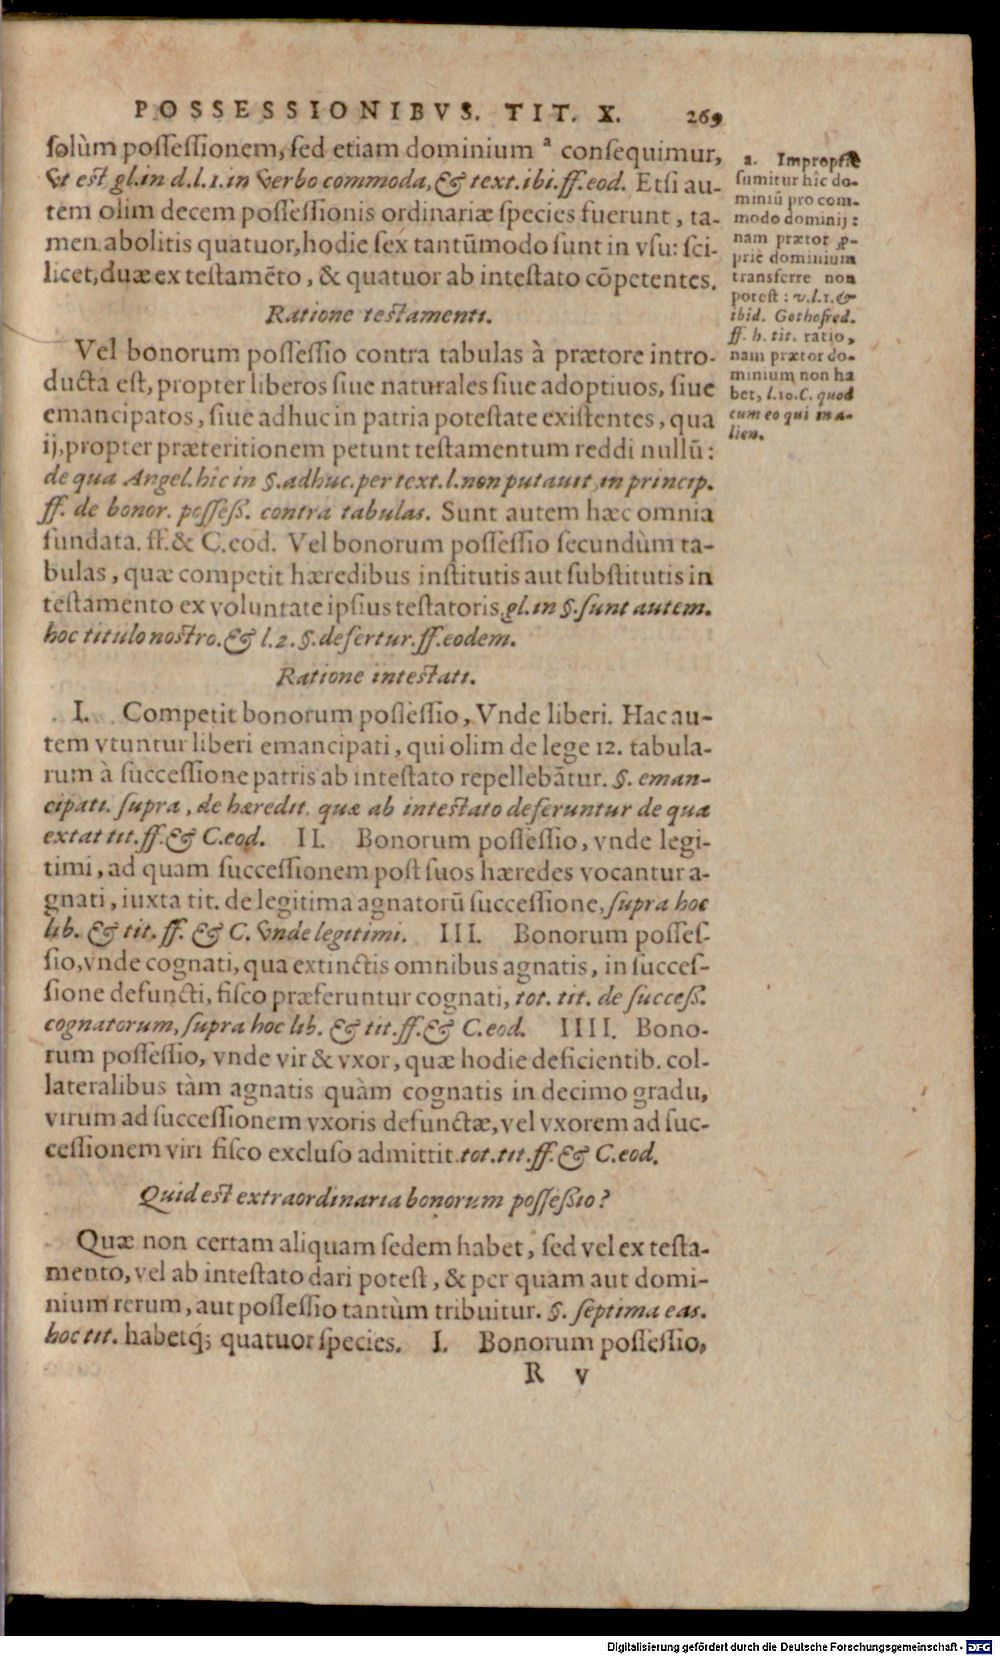 POSSESSIONIBVS. TIT. X. 269
solùm possessionem, sed etiam dominium ª consequimur,
Vt est gl. in d. l. 1. in verbo commoda, & text. ibi. ff. eod. Etsi au-
tem olim decem possessionis ordinariæ species fuerunt, ta-
men abolitis quatuor, hodie sex tantũmodo sunt in vsu: sci-
licet, duæ ex testamẽto, & quatuor ab intestato cõpetentes.
Ratione testamenti.
Vel bonorum possessio contra tabulas à prætore intro-
ducta est, propter liberos siue naturales siue adoptiuos, siue
emancipatos, siue adhuc in patria potestate existentes, qua
ij, propter præteritionem petunt testamentum reddi nullũ:
de qua Angel. hic in §. adhuc. per text. l. non putauit, in princip.
ff. de bonor. possess. contra tabulas. Sunt autem hæc omnia
fundata. ff. & C. eod. Vel bonorum possessio secundùm ta-
bulas, quæ competit hæredibus institutis aut substitutis in
testamento ex voluntate ipsius testatoris, gl. in §. sunt autem.
hoc titulo nostro. & l. 2. §. defertur. ff. eodem.
Ratione intestati.
I. Competit bonorum possessio, Vnde liberi. Hac au-
tem vtuntur liberi emancipati, qui olim de lege 12. tabula-
rum à successione patris ab intestato repellebãtur. §. eman-
cipati. supra, de hæredit. quæ ab intestato deferuntur de qua
extat tit. ff. & C. eod. II. Bonorum possessio, vnde legi-
timi, ad quam successionem post suos hæredes vocantur a-
gnati, iuxta tit. de legitima agnatorũ successione, supra hoc
lib. & tit. ff. & C. Vnde legitimi. III. Bonorum posses-
sio, vnde cognati, qua extinctis omnibus agnatis, in succes-
sione defuncti, fisco præferuntur cognati, tot. tit. de success.
cognatorum, supra hoc lib. & tit. ff. & C. eod. IIII. Bono-
rum possessio, vnde vir & vxor, quæ hodie deficientib. col-
lateralibus tàm agnatis quàm cognatis in decimo gradu,
virum ad successionem vxoris defunctæ, vel vxorem ad suc-
cessionem viri fisco excluso admittit. tot. tit. ff. & C. eod.
Quid est extraordinaria bonorum possessio?
Quæ non certam aliquam sedem habet, sed vel ex testa-
mento, vel ab intestato dari potest, & per quam aut domi-
nium rerum, aut possessio tantùm tribuitur. §. septima eas.
hoc tit. habetq́; quatuor species. I. Bonorum possessio,
R v
a. Impropriè
sumitur hîc do-
miniũ pro com-
modo dominij:
nam prætor ꝓ-
priè dominium
transferre non
potest: v. l. 1. &
ibid. Gothofred.
ff. h. tit. ratio,
nam prætor do-
minium non ha
bet, l. 10. C. quod
cum eo qui in a-
lien.
Digitalisierung gefördert durch die Deutsche Forschungsgemeinschaft - DFG